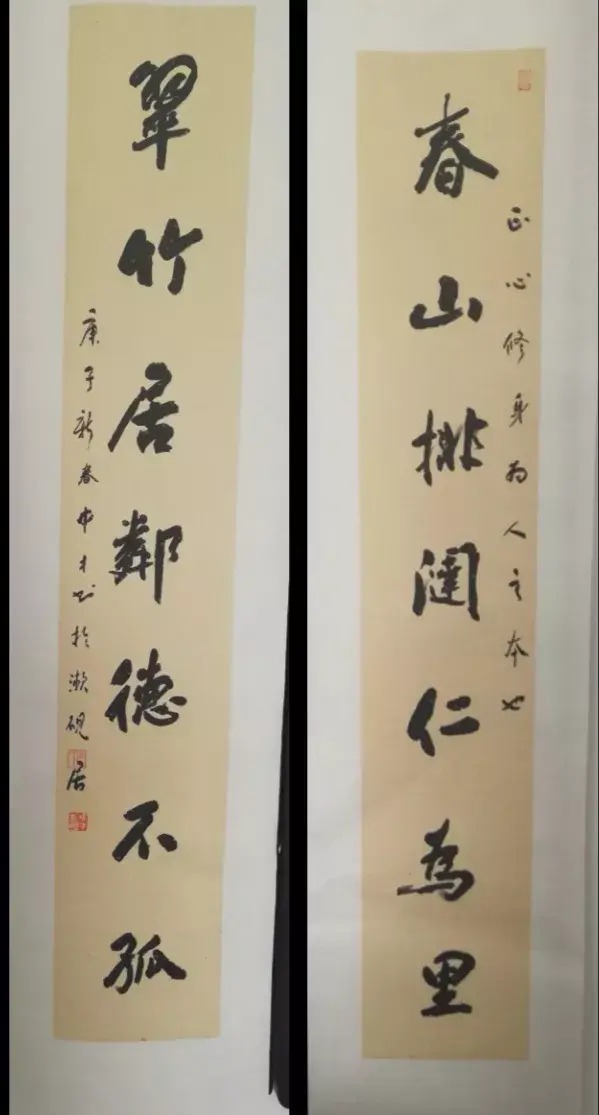 春山排闼仁為里
正心修身为人之本也
翠竹居鄰德不孤
庚子新春申才书於漱砚居